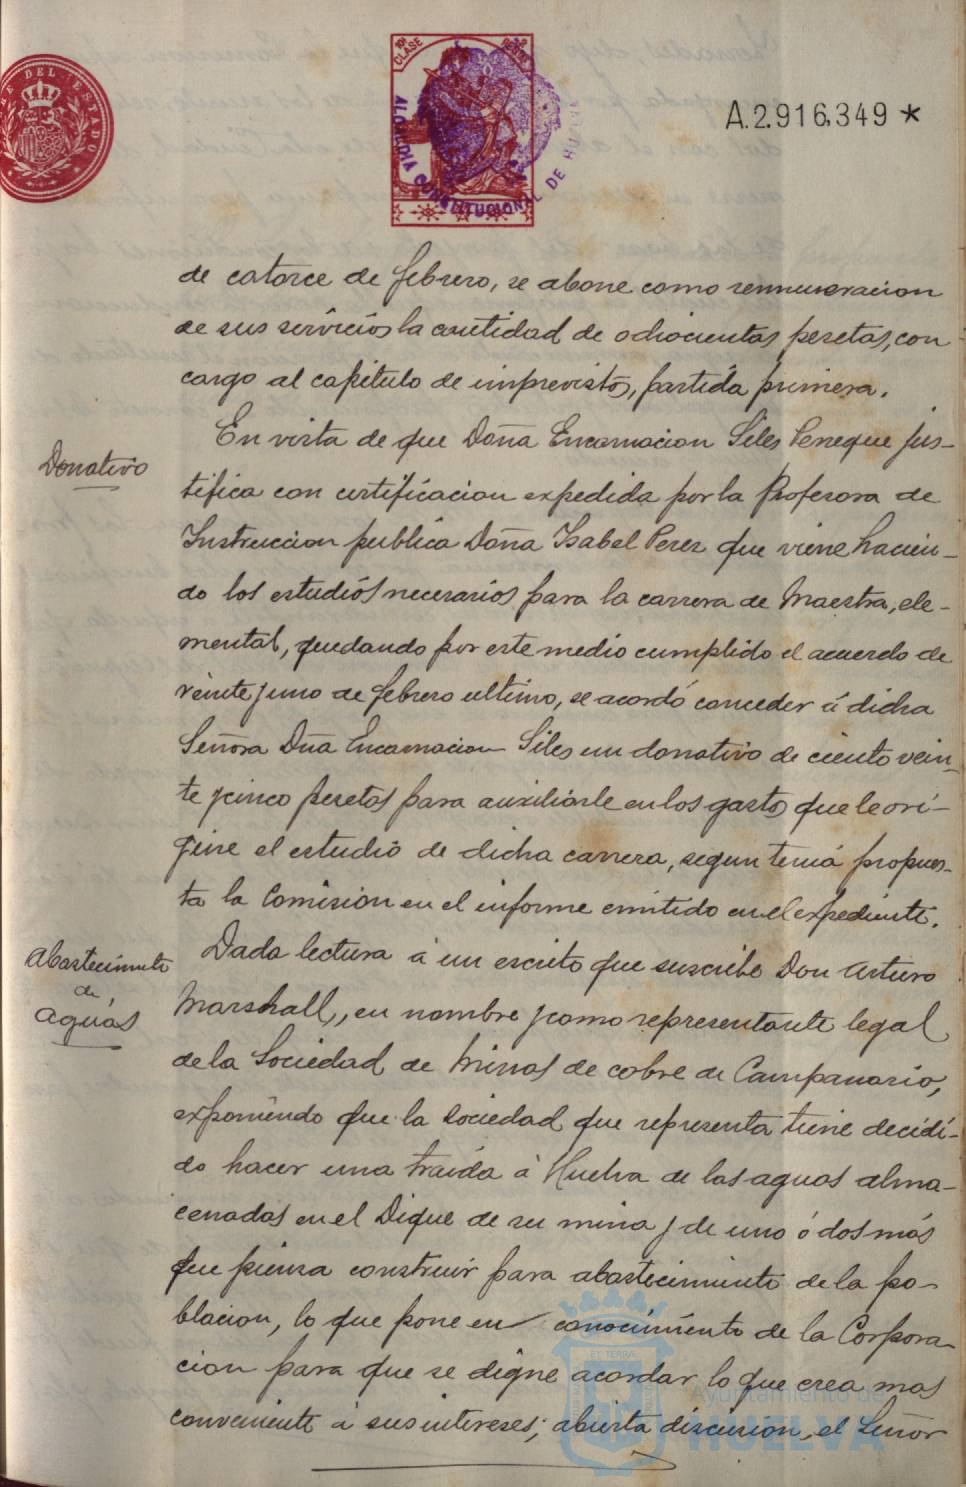 TIMBRE DEL ESTADO
10ª CLASE
2 PESETAS
ALCALDIA CONSTITUCIONAL DE HUELVA
A.2.916,349 *
de catorce de febrero, se abone como remuneracion
de sus servicios la cantidad de ochocientas pesetas, con
cargo al capitulo de imprevistos, partida primera.
Donativo
En vista de que Doña Encarnacion Siles Peneque jus-
tifica con certificacion expedida por la Profesora de
Instruccion publica Doña Isabel Perez que viene hacien-
do los estudios necesarios para la carrera de Maestra, ele-
mental, quedando por este medio cumplido el acuerdo de
veinte y uno de febrero ultimo, se acordó conceder á dicha
Señora Dña Encarnacion Siles un donativo de ciento vein-
te y cinco pesetas para auxiliarle en los gastos que le ori-
gine el estudio de dicha carrera, segun tenia propues-
ta la Comision en el informe emitido en el expediente.
Abastecimiento
de
aguas
Dada lectura á un escrito que suscribe Don Arturo
Marshall, en nombre y como representante legal
de la Sociedad de Minas de cobre de Campanario,
exponiendo que la sociedad que representa tiene decidi-
do hacer una traida á Huelva de las aguas alma-
cenadas en el Dique de su mina y de uno ó dos más
que piensa construir para abastecimiento de la po-
blacion, lo que pone en conocimiento de la Corpora-
cion para que se digne acordar lo que crea mas
conveniente á sus intereses; abierta discusion, el Señor
ET TERRÆ
Ayuntamiento de
HUELVA